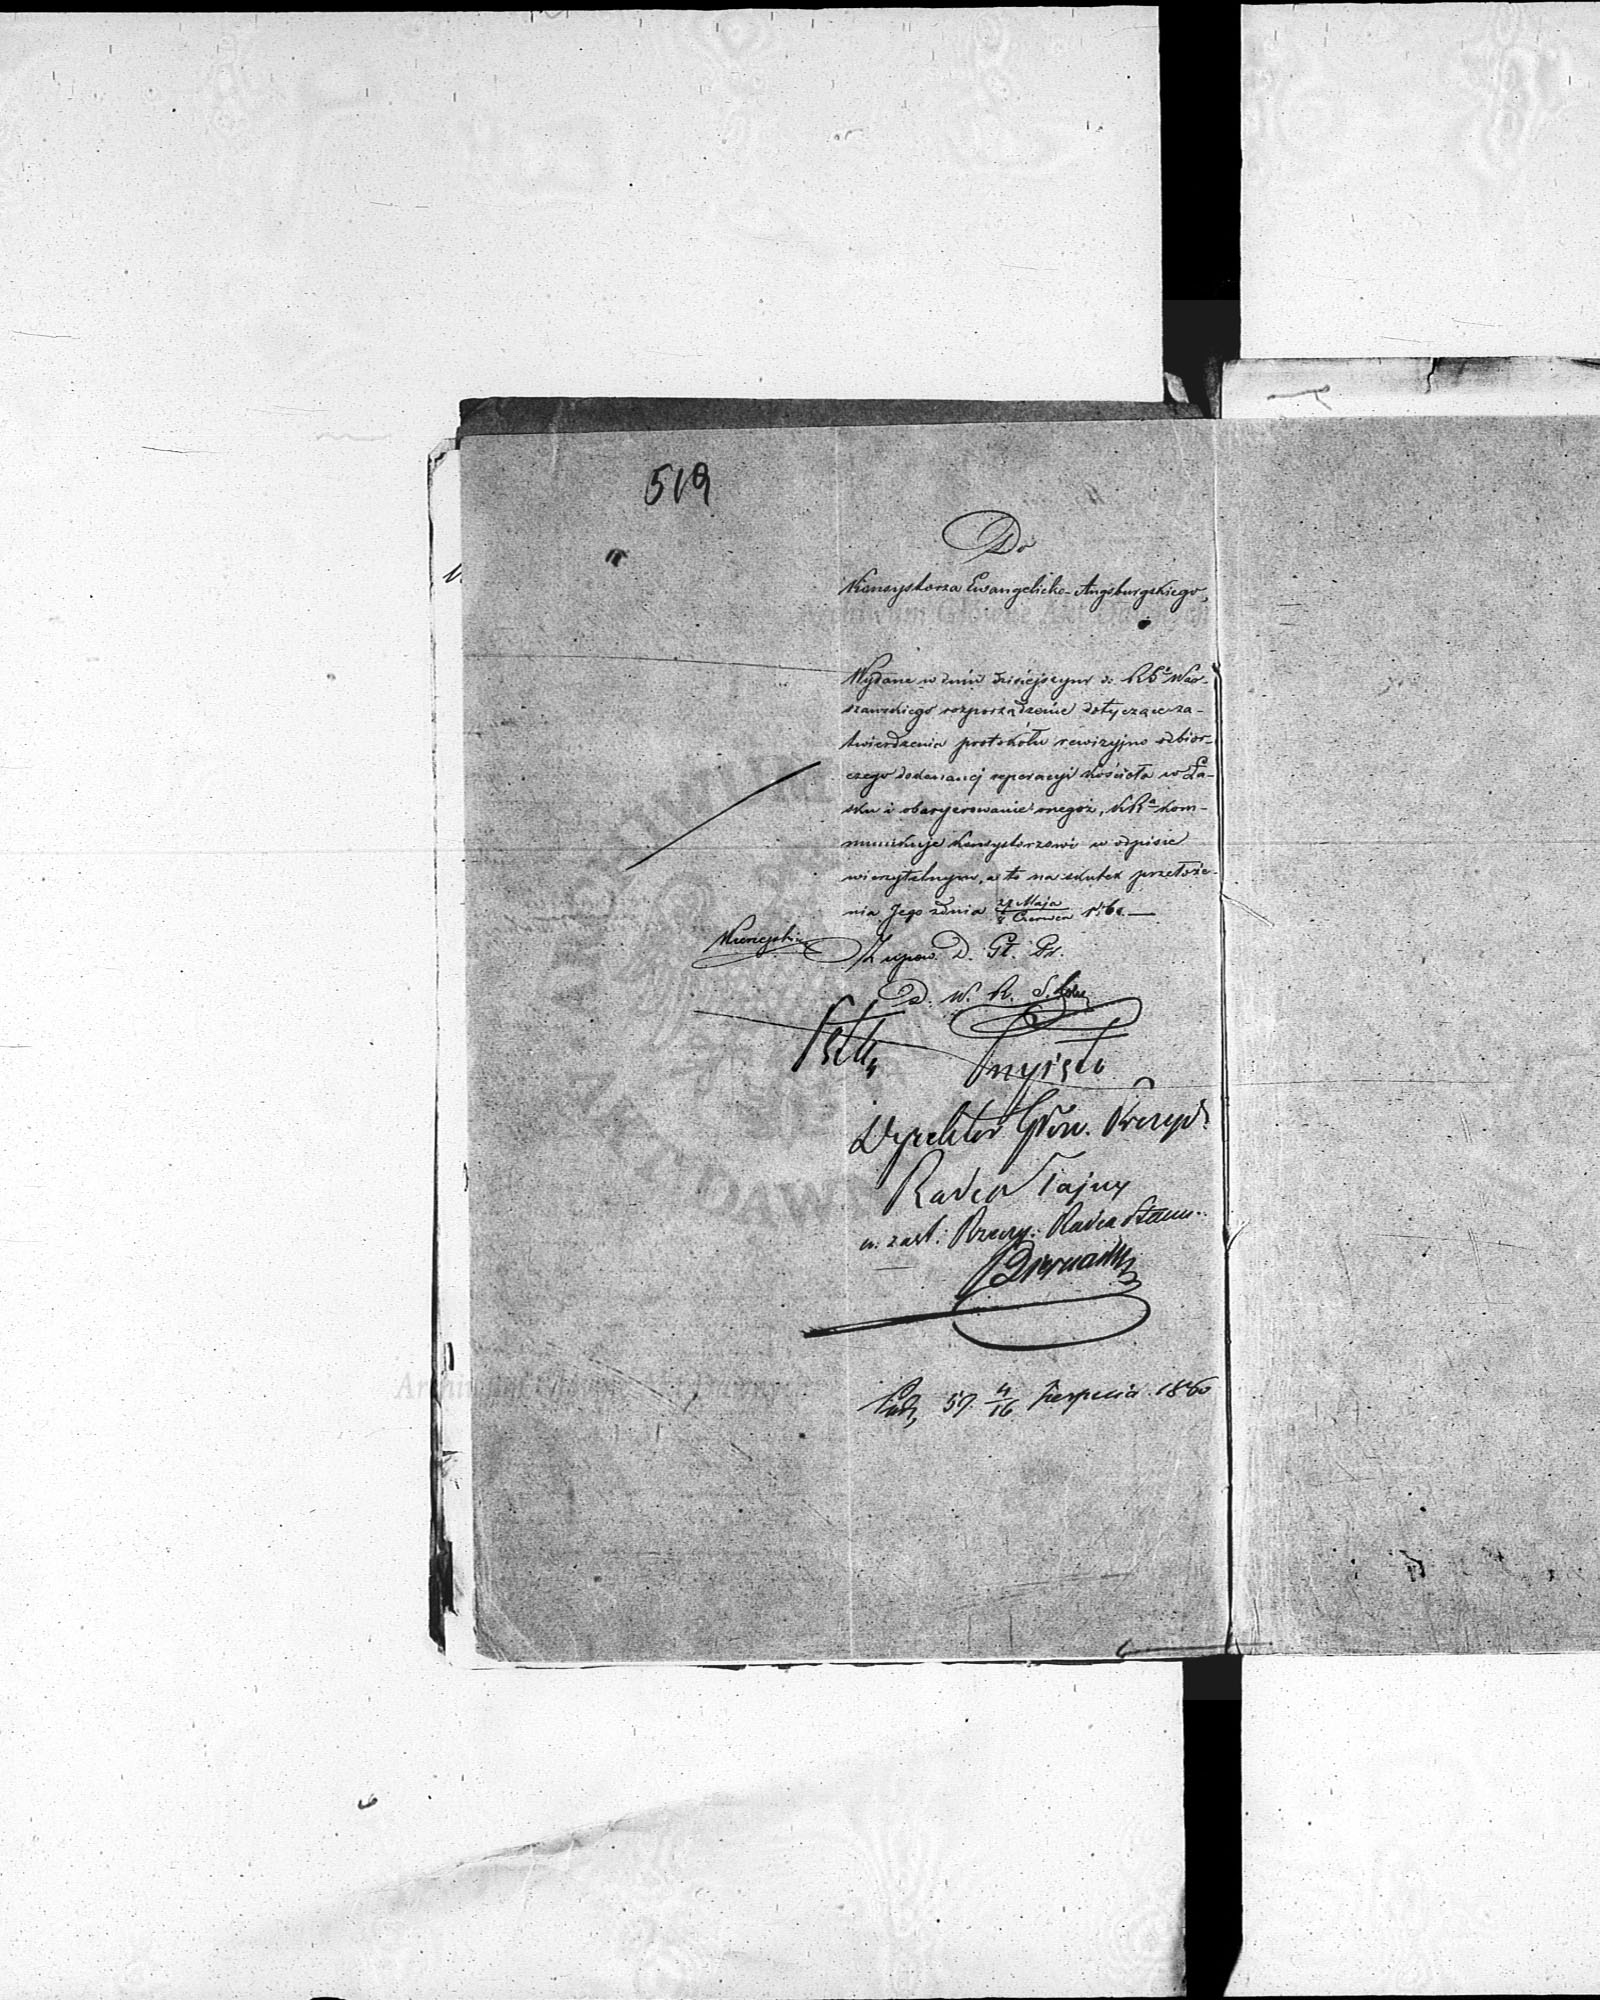 519
Do
Konsystorza Ewangelicko-Augsburgskiego,
Wydane w dniu dzisiejszym do RGu War-
szawskiego rozporządzenie dotyczące za-
twierdzenia protokołu rewizyjno odbior-
czego dokonanej reperacyi kościoła w Ła-
sku i obaryerowanie onegoż, KRa kom-
munikuje konsystorzowi w odpisie
wierzytelnym, a to na skutek przełoże-
nia Jego z dnia Maja / Czerwca 1860 —
Z upow. D. Gł. Pr.
D. W. R. S.
Dyrektor Głów. Prezyd.
Radca Tajny
w. zast. Rzeczy. Radca Stanu
59. 4/16 Sierpnia 1860
Archiwum Główne Akt Dawnych
ARCHIWUM AKT DAWN